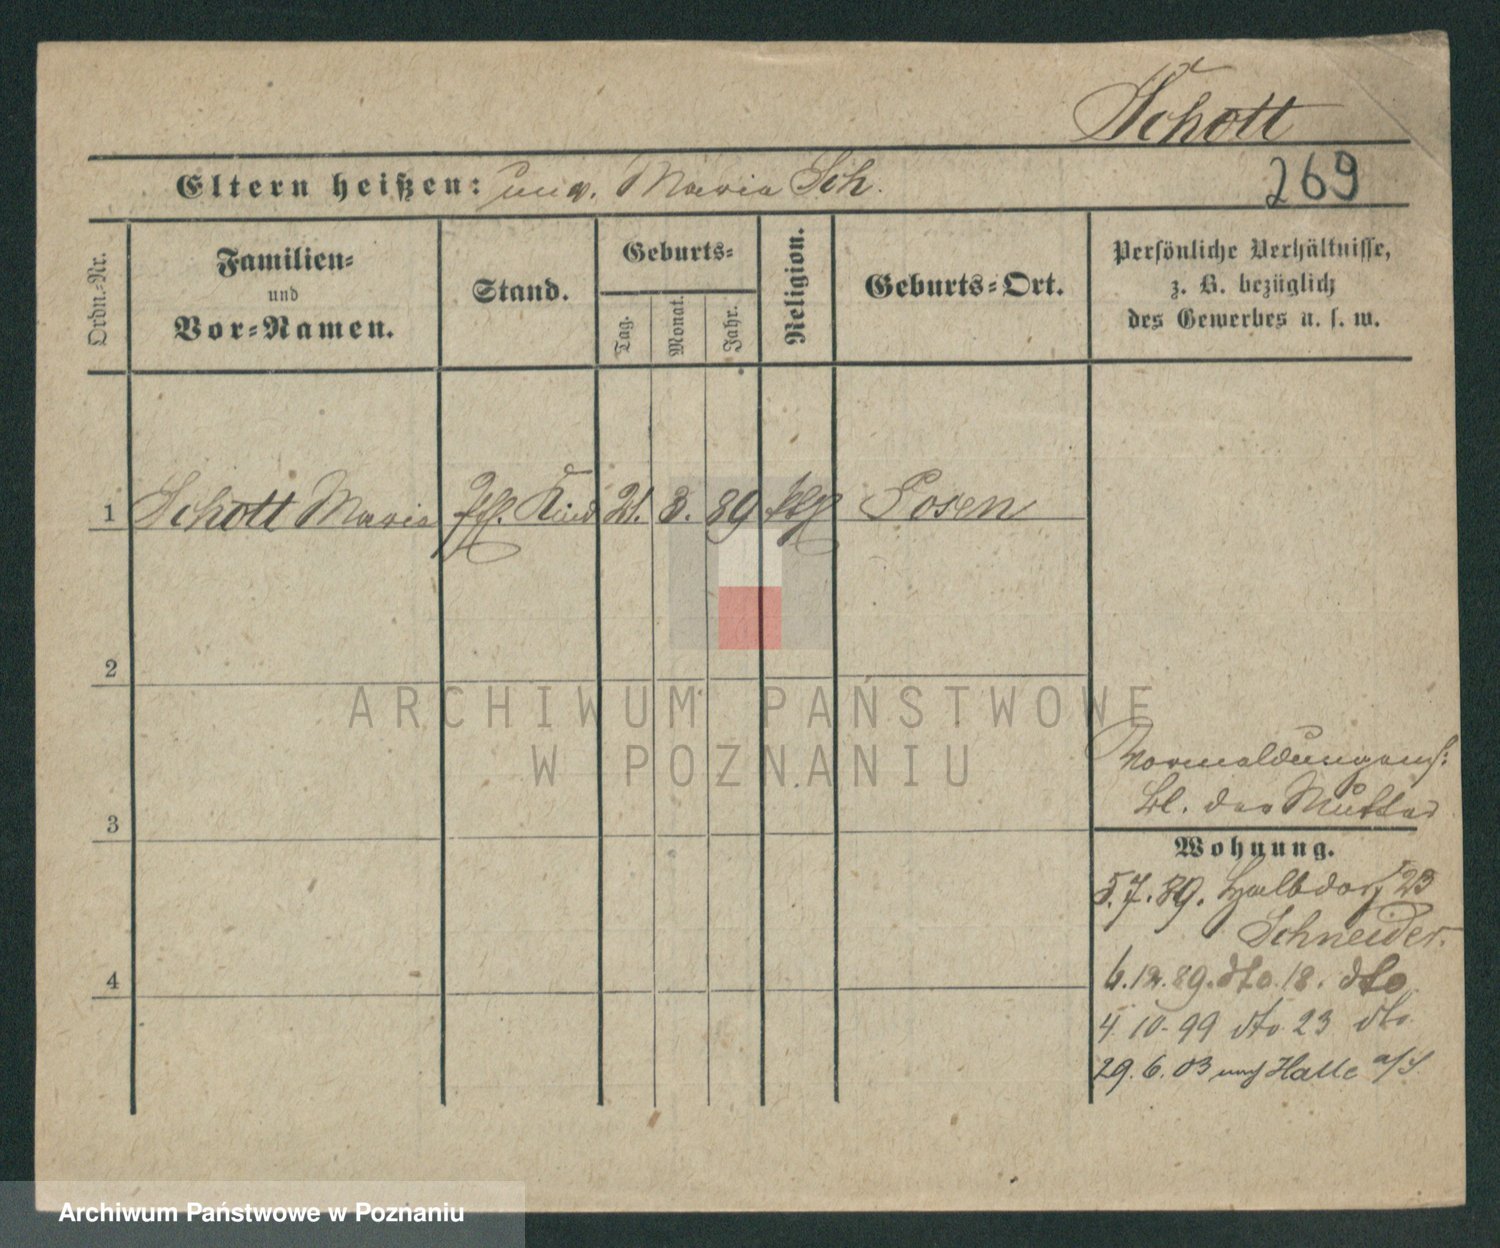 Schott
269
Eltern heißen: unv. Maria Sch.
Ordn.-Nr.
Familien-
und
Vor-Namen.
Stand.
Geburts-
Tag.
Monat.
Jahr.
Religion.
Geburts-Ort.
Persönliche Verhältnisse,
z. B. bezüglich
des Gewerbes u. s. w.
1 Schott Maria Kind 21. 3. 89 Posen
2
3
4
ARCHIWUM PAŃSTWOWE
W POZNANIU
Bl. der Mutter
Wohnung.
5.7.89. Halbdorf 23
Schneider.
6.12.89. dto. 18. dto
4. 10. 99 dto. 23 dto.
29. 6. 03 nach Halle a/S.
Archiwum Państwowe w Poznaniu